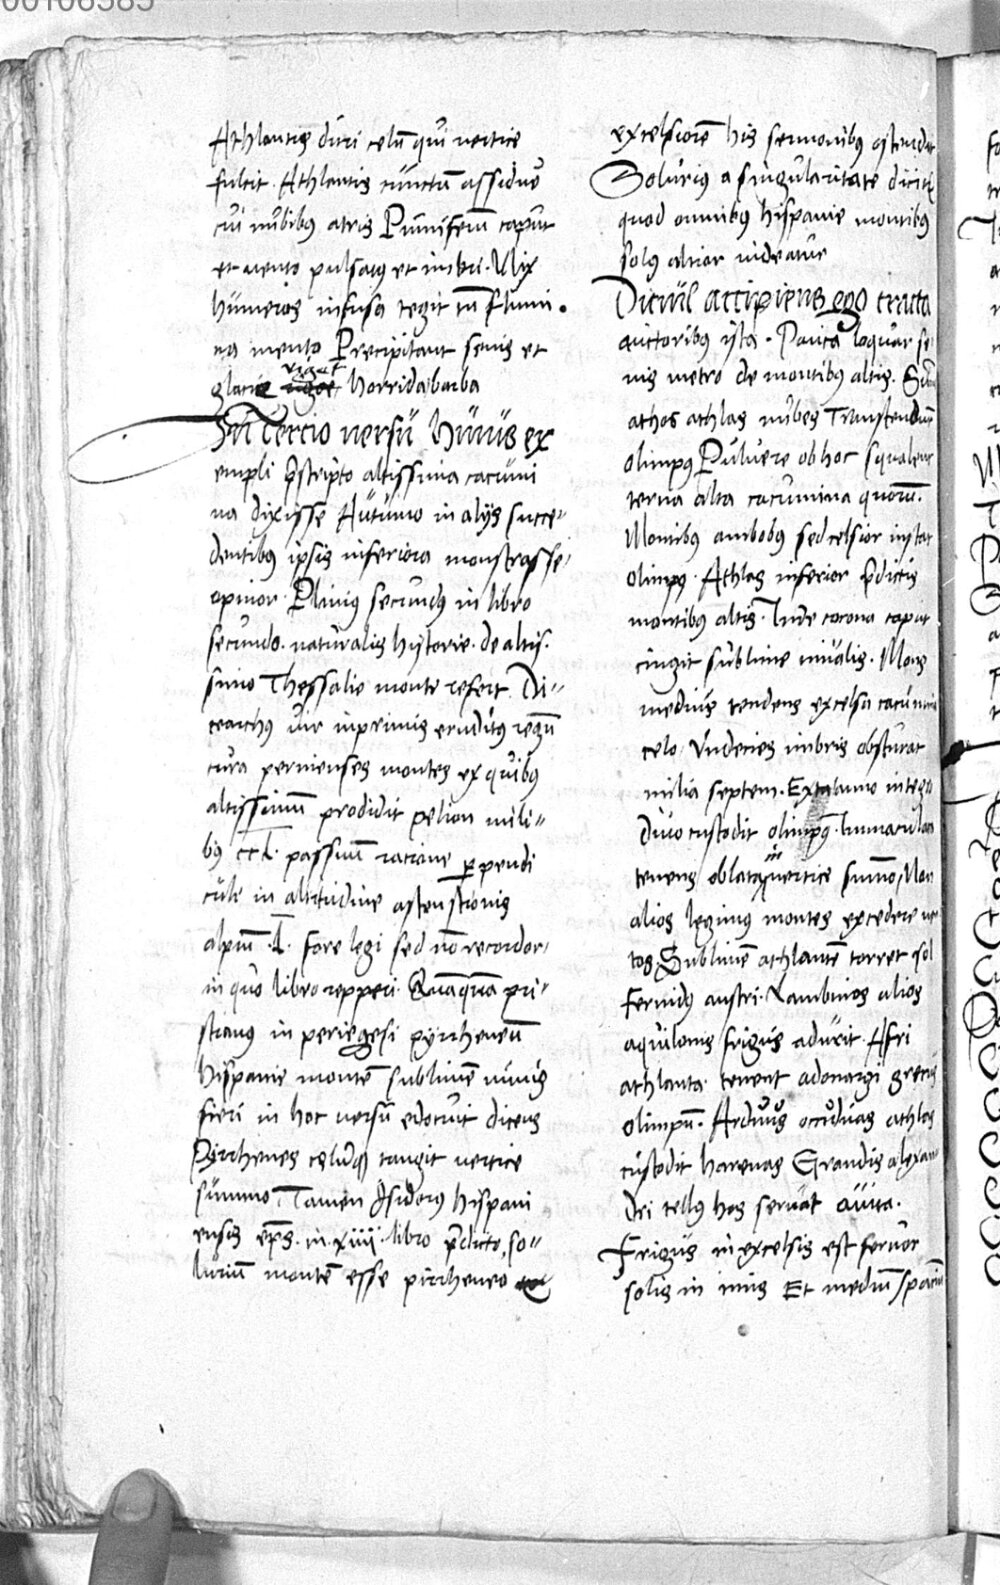 Athlantis duri celū qui vertice
fulcit. Athlantis cunctū assiduo
cui nubibus atris Piniferū caput
et vento pulsatus et imbri. Nix
humeros infusa tegit tū flumi.
na mento Precipitant senis et
glacie riget horrida barba
In Tercio versu huius ex
empli p̄scripto altissima cacumi
na dixisse Autumo in aliis succe-
dentibus ipsis inferiora monstrasse.
opinor. Plinius secundus in libro
secundo. naturalis historie. de altis.
simo Thessalie monte refert. Di-
cearchus vir inprimis eruditus regū
cura permenses montes ex quibus
altissimū prodidit pelion mili-
bus ccl. passuum racione perpendi
cule in altitudine astenstionis
alpiū .L. fore legi sed nō recordor,
in quo libro repperi. Quāquā pri-
stianus in periegesi pyrrheneū
hispanie montē sublimē nimis
fieri in hoc versu edocuit dicens
Pyrrhenes celūq tangit vertice
summo Tamen Isidorus hispani
ensis ep̄s. in. xiiii. libro p̄dicto, so-
lurium montē esse pirrheneo
excelsiorē his sermonibus ostendit
Solurius a singularitate dicitur
quod omnibus hispanie montibus
solus altior videatur
Dicuil accipiens ego tracta
auctoribus ista. Pauca loquar se
nis metro de montibus altis.
athos athlas nubes Transcendunt
olimpus Pulvere ob hoc squalent
terna alta cacumina quorū.
Montibus ambobus sed celsior instat
olimpus. Athlas inferior p̄dictis
montibus altis. Inde corona caput
cingit sublime nivalis. Mons
medius tendens excelsa cacumina
celo Vndecies imbris obscurat
milia septem. Extalinno integra
Diuo custodit olimpus. Immaculata
tenens oblata in vertice summo, Non
alios legimus montes excedere ven
tos. Sublimē athlantē torret sol
fervidus austri. Lambinos alios
aquilonis frigus adurit. Afri
athlanta tenent adonargi grecus
olimpū. Arduus occiduas athlas
custodit harenas Grandis alexan-
Dri tellus hos servat avita.
Frigus in excelsis est fervor
solis in imis Et mediū spaciū